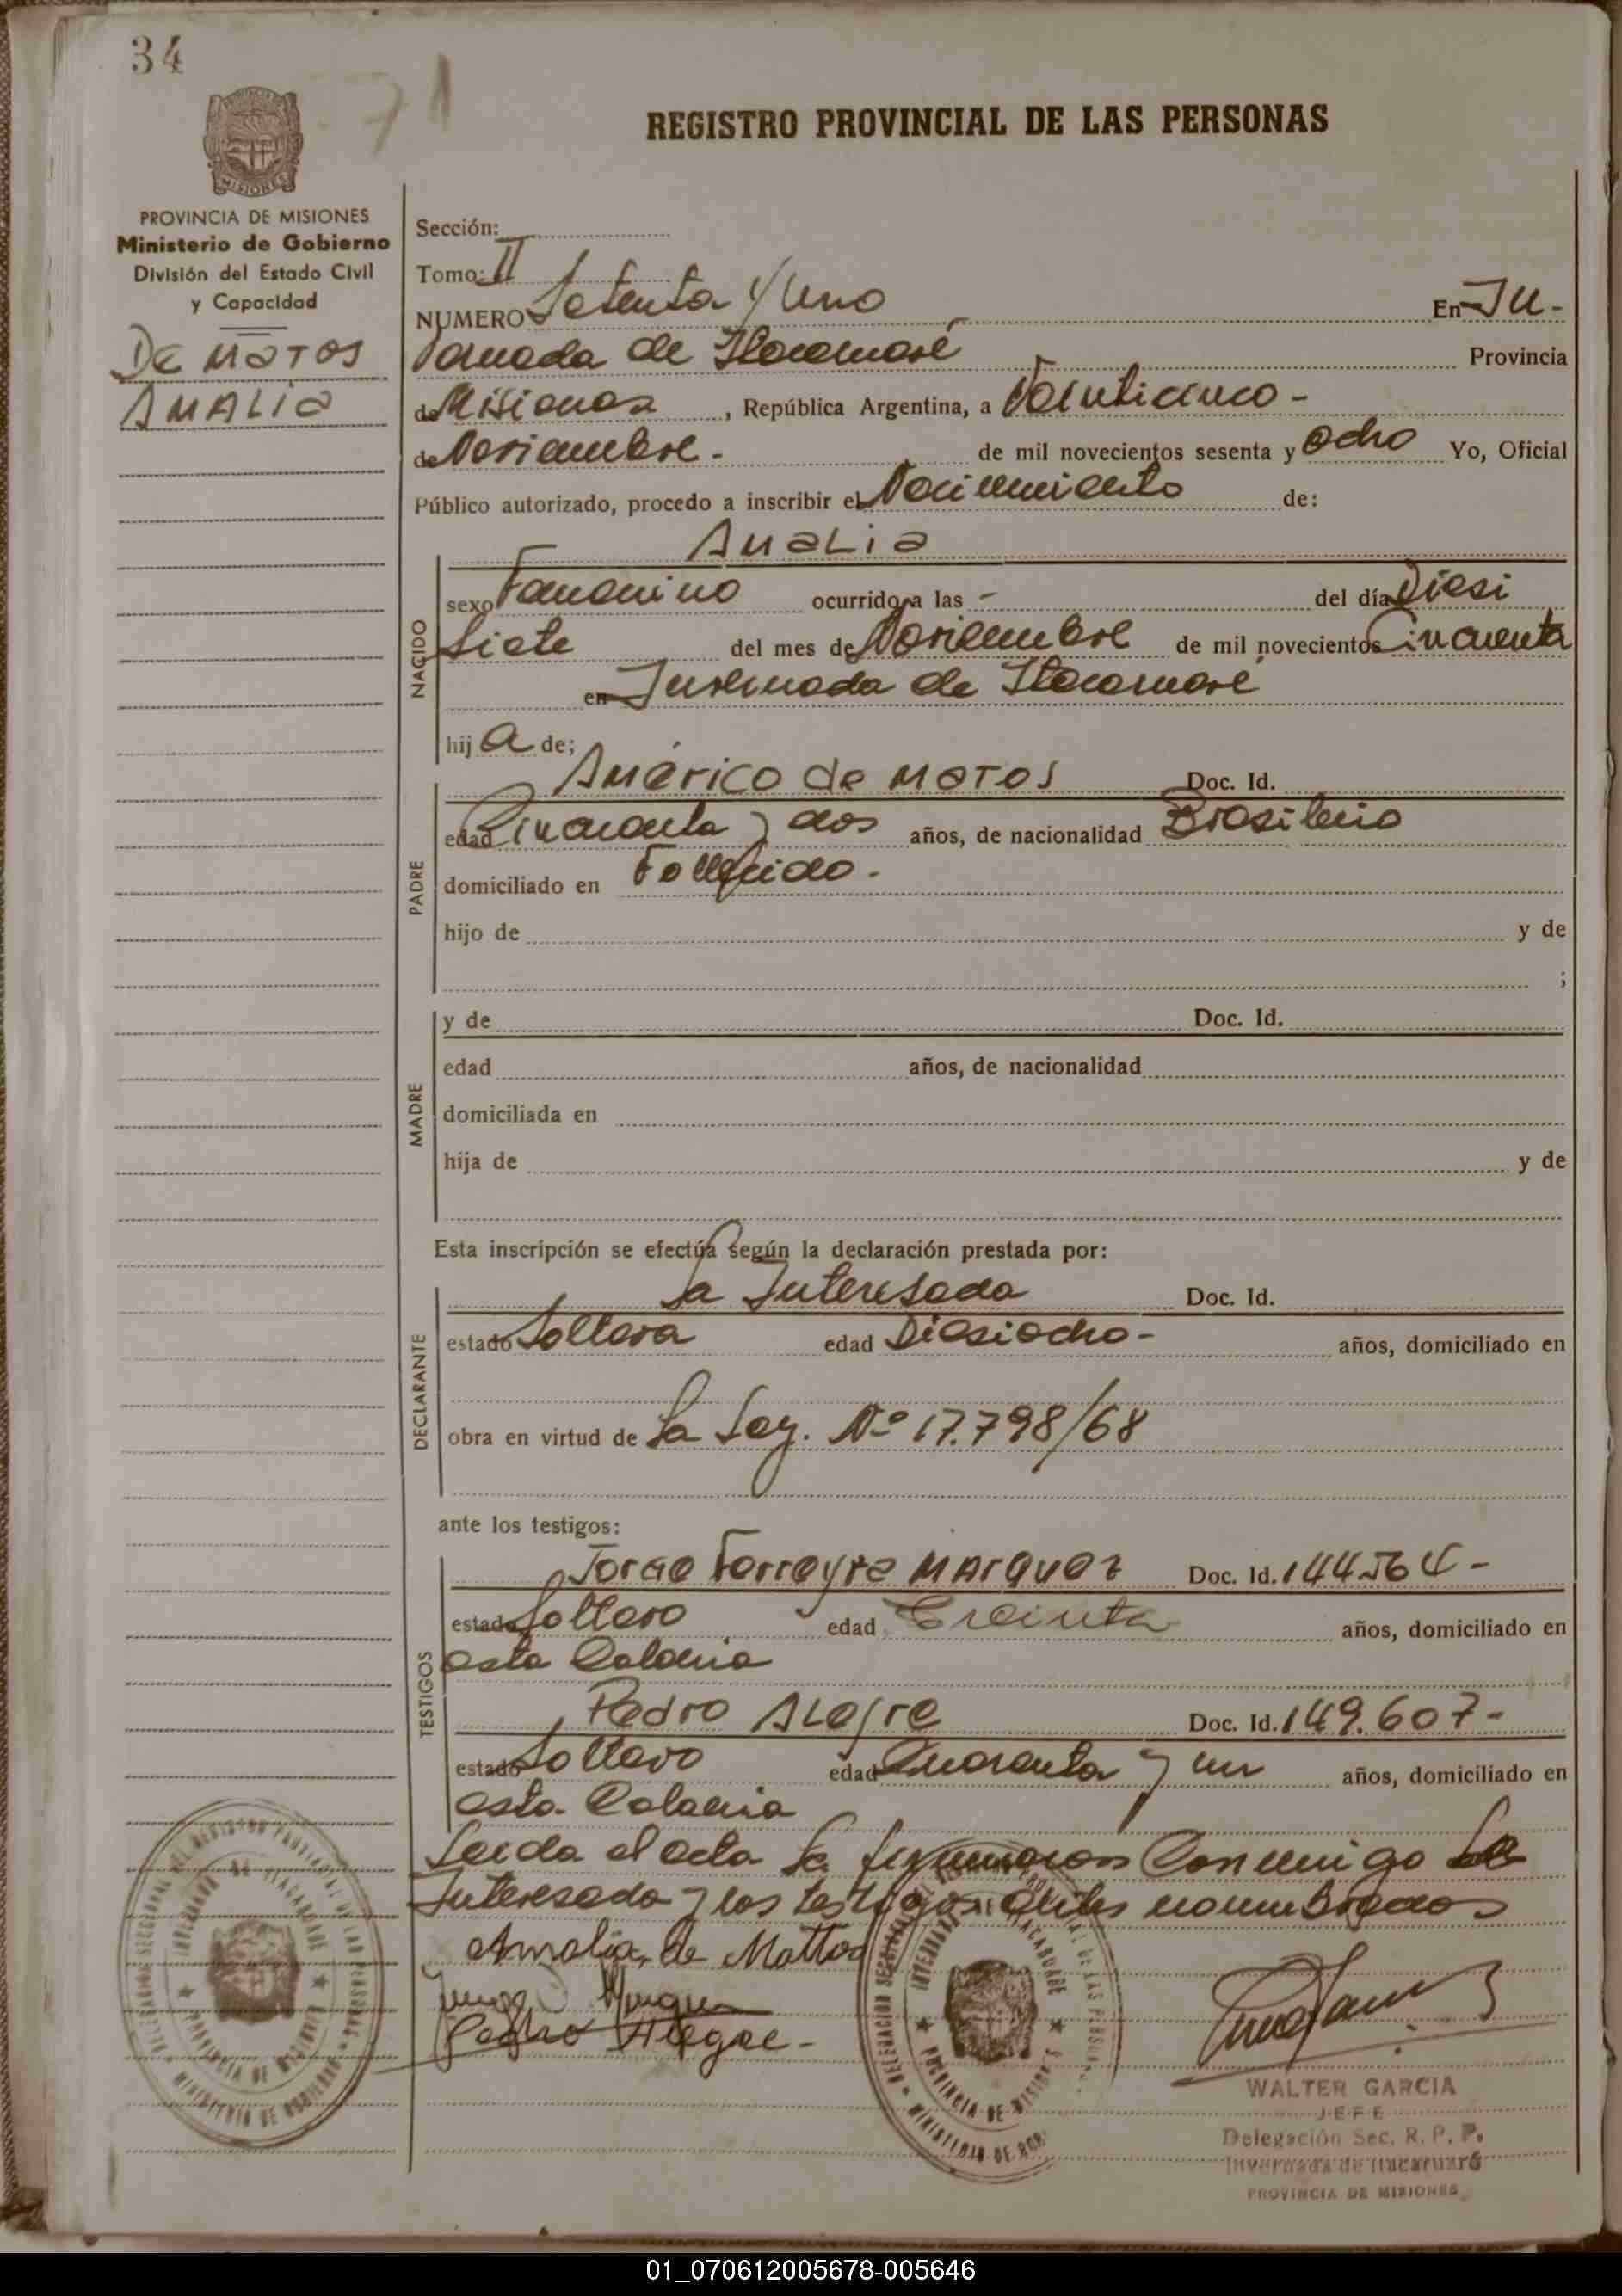 34
71
REGISTRO PROVINCIAL DE LAS PERSONAS
MISIONES
PROVINCIA DE MISIONES
Ministerio de Gobierno
División del Estado Civil
y Capacidad
De Matos
Amalia
Sección:
Tomo: II
NUMERO Setenta y Uno En In-
vernada de Itacaruaré Provincia
de Misiones, República Argentina, a Veinticinco -
de Noviembre. - de mil novecientos sesenta y ocho Yo, Oficial
Público autorizado, procedo a inscribir el Nacimiento de:
Amalia
NACIDO
sexo Femenino ocurrido a las - del día Diesi
Siete del mes de Noviembre de mil novecientos Cincuenta
en Invernada de Itacaruaré
hij a de;
PADRE
Américo de Matos Doc. Id.
edad Cincuenta y dos años, de nacionalidad Brasileño
domiciliado en Fallecido. -
hijo de y de
;
MADRE
y de Doc. Id.
edad años, de nacionalidad
domiciliada en
hija de y de
Esta inscripción se efectúa según la declaración prestada por:
DECLARANTE
La Interesada Doc. Id.
estado Soltera edad Diesiocho - años, domiciliado en
obra en virtud de La Ley. Nº 17.798/68
ante los testigos:
TESTIGOS
Jorge Ferreyra Marquez Doc. Id. 144.564 -
estado Soltero edad Treinta años, domiciliado en
esta Colonia
Pedro Alegre Doc. Id. 149.607 -
estado Soltero edad Cuarenta y un años, domiciliado en
esta Colonia
Leida el acta la firmaron Conmigo La
Interesada y los testigos antes nombrados
Amalia de Mattos
Pedro Alegre -
WALTER GARCIA
JEFE
Delegación Sec. R. P. P.
Invernada de Itacaruaré
PROVINCIA DE MISIONES
01_070612005678-005646